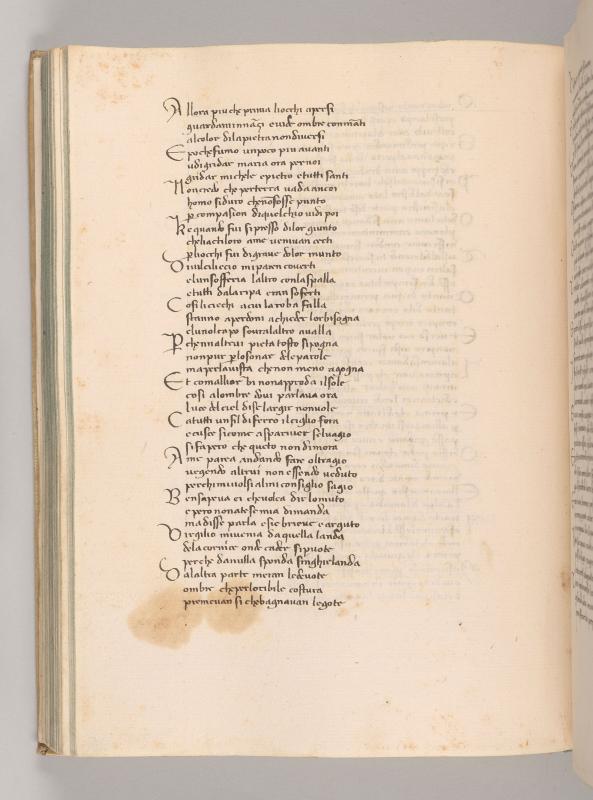 Allora piu che prima liocchi apersi
guardami innāçi e vidi ombre con māti
al color dila pietra non diversi
E poche fumo un poco piu avanti
udi gridar maria ora per noi
gridar michele e pietro e tutti santi
Non credo che per terra vada ancoi
homo si duro che nō fosse punto
per compasion di quel chio vidi poi
Ke quando fui si presso di lor giunto
che li acti loro a me venivan certi
per liocchi fui di grave dolor munto
Di vil cilicio mi paren coverti
e lun sofferia laltro con la spalla
e tutti da la ripa eran soferti
Cosi li ciechi a cui la roba falla
stanno a perdoni a chieder lor bisogna
e luno il capo sovra laltro avalla
Perchen altrui pieta tosto si pogna
non pur per lo sonar dele parole
ma per la vista che non meno agogna
Et comalliorbi non approda il sole
cosi alombre dovi parlava ora
luce del ciel di se largir non vole
Ca tutti un fil di ferro il ciglio fora
e cusce si come a sparivier selvagio
si fa pero che queto non dimora
A me parea andando fare oltragio
vegendo altrui non essendo veduto
perchi mi volsi al mi consiglio sagio
Ben sapeva ei che volea dir lo muto
e pero non atese mia dimanda
ma disse parla e sie brieve e arguto
Virgilio mi venia da quella landa
dela cornice onde cader si puote
perche da nulla sponda singhirlanda
Dalaltra parte meran le devote
ombre che per loribile costura
premevan si che bagnavan le gote